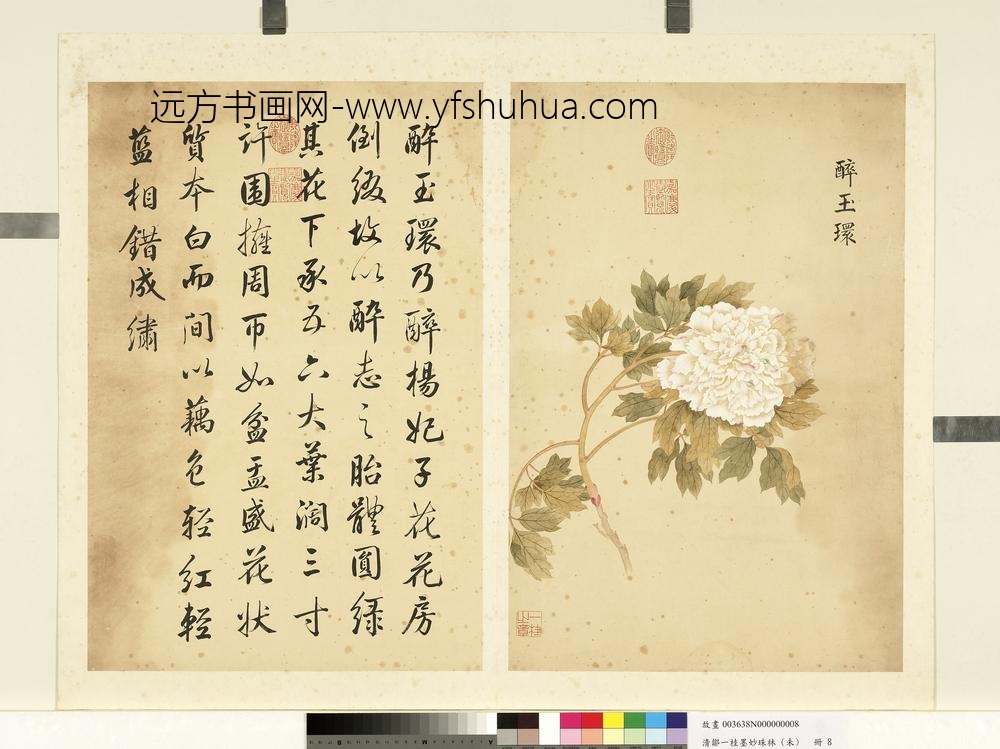 远方书画网-www.yfshuhua.com
醉玉環
醉玉環乃醉楊妃子花花房
倒綴故以醉志之胎體圓綠
其花下承五六大葉濶三寸
許圍擁周帀如盆盂盛花狀
質本白而間以藕色輕紅輕
藍相錯成繡
一桂
之章
故畫 003638N000000008
清鄒一桂墨妙珠林（未） 冊 8